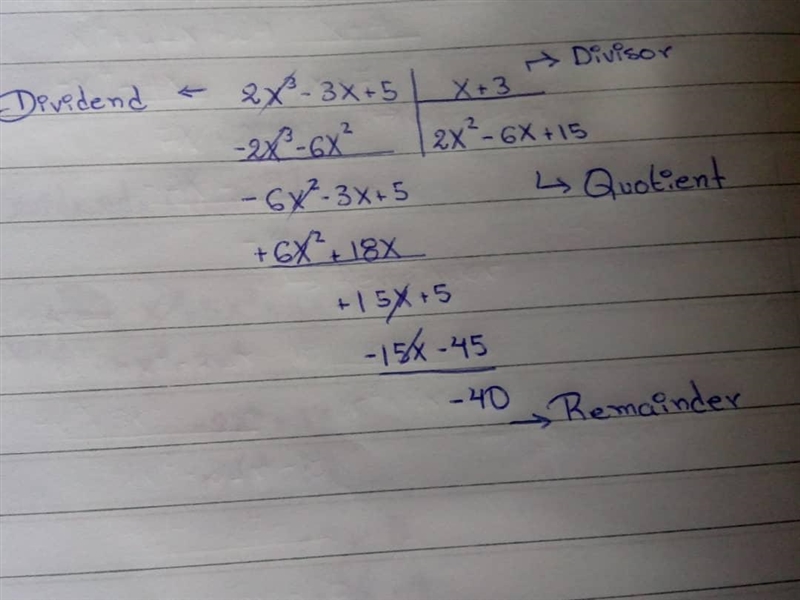 Dividend ← 2x³ - 3x + 5 | x + 3 → Divisor
-2x³ - 6x² | 2x² - 6x + 15
- 6x² - 3x + 5 ↳ Quotient
+ 6x² + 18x
+ 15x + 5
- 15x - 45
- 40 → Remainder